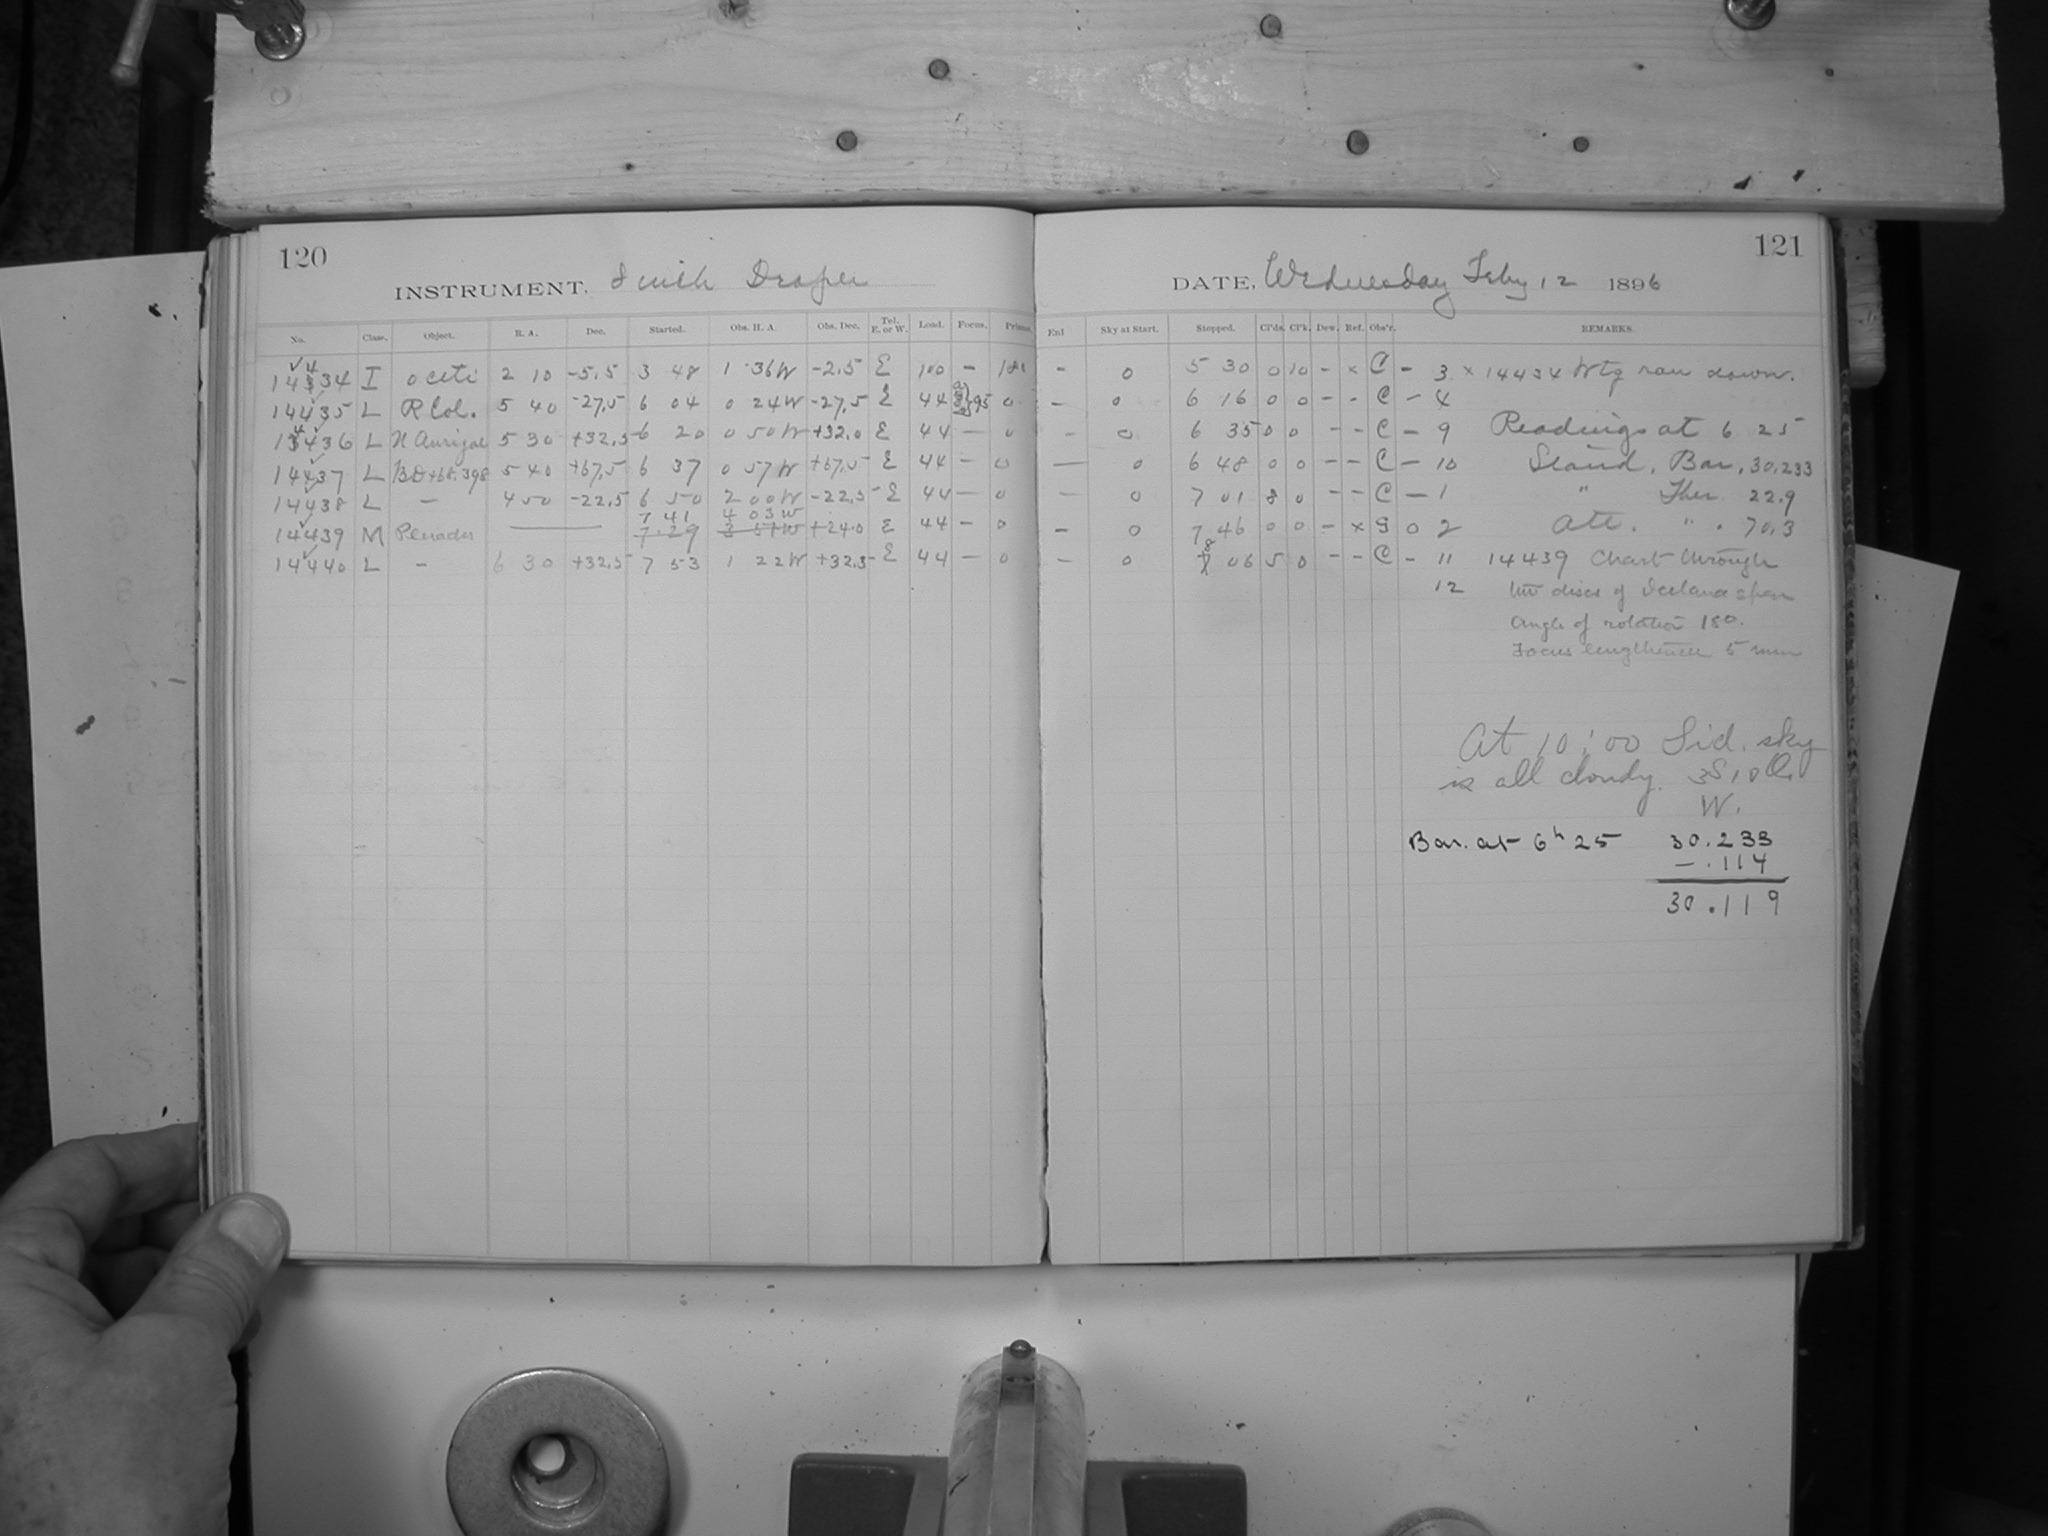 120
INSTRUMENT. 8 inch Draper
No. Class. Object. R. A. Dec. Started. Obs. H. A. Obs. Dec. Tel. E. or W. Load. Focus. Prisms.
14434 I o ceti 2 10 -5.5 3 48 1 36W -2.5 E 100 -
14435 L R Col. 5 40 -27.5 6 04 0 24W -27.5 E 44 95 0
14436 L Aurigae 5 30 +32.5 6 20 0 50W +32.0 E 44 - 0
14437 L BD+68.398 5 40 +67.5 6 37 0 57W +67.5 E 44 - 0
14438 L - 4 50 -22.5 6 50 2 00W -22.5 E 44 - 0
7 41 4 03W
14439 M Pleiades 7.29 3 51W +24.0 E 44 - 0
14440 L - 6 30 +32.5 7 53 1 22W +32.5 E 44 - 0
121
DATE, Wednesday Feby 12 1896
Exl Sky at Start. Stopped. Cl'ds. Cl'k. Dew. Ref. Obs'r. REMARKS.
- 0 5 30 0 10 - x C - 3 x 14434 Wtg ran down.
- 0 6 16 0 0 - - C - 4
- 0 6 35 0 0 - - C - 9 Readings at 6 25
- 0 6 48 0 0 - - C - 10 Stand. Bar. 30.233
- 0 7 01 8 0 - - C - 1 " Ther. 22.9
- 0 7 46 0 0 - x S 0 2 Att. " . 70.3
- 0 8 06 5 0 - - C - 11 14439 Chart through
12 two discs of Iceland spar
Angle of rotation 180.
Focus lengthened 5 mm
At 10:00 Sid. sky
is all cloudy.
W.
Bar. at 6h 25 30.233
- .114
30.119